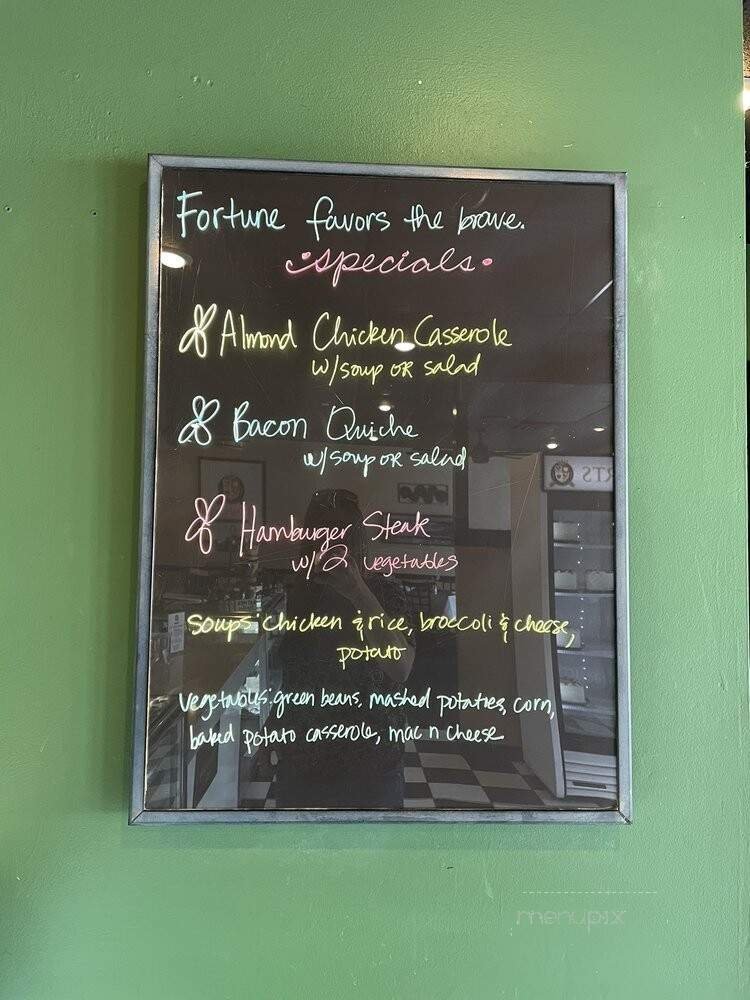 Fortune favors the brave.
specials
Almond Chicken Casserole
w/soup OR salad
Bacon Quiche
w/soup OR salad
Hamburger Steak
w/ 2 vegetables
soups: chicken & rice, broccoli & cheese,
potato
vegetables: green beans, mashed potatoes, corn,
baked potato casserole, mac n cheese
menupix